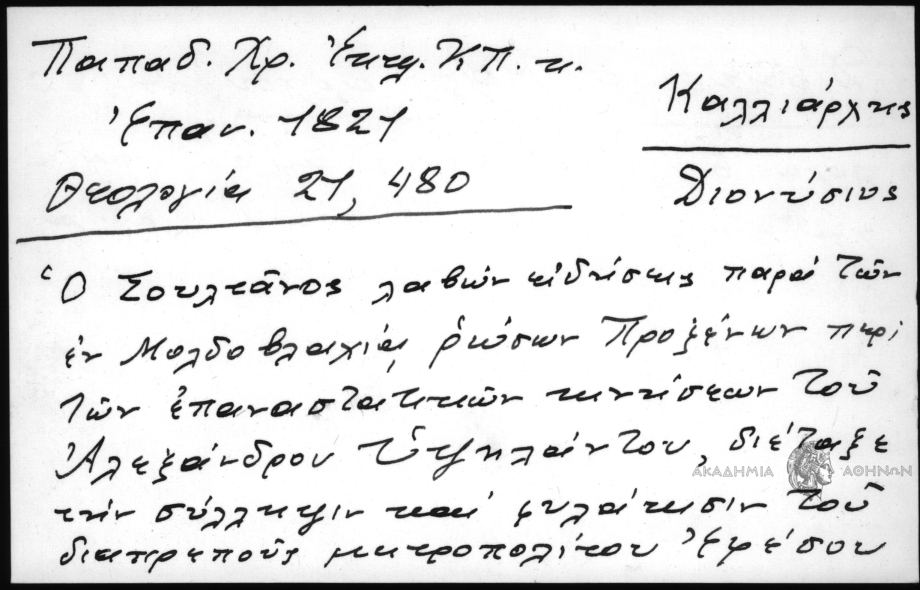 Παπαδ. Χρ. Ἐκκλ. Κ.Π. κ.
Ἐπαν. 1821
Θεολογία 21, 480
Καλλιάρχης
Διονύσιος
Ὁ Σουλτᾶνος λαβὼν εἰδήσεις παρὰ τῶν
ἐν Μολδοβλαχίᾳ ῥώσων Προξένων περὶ
τῶν ἐπαναστατικῶν κινήσεων τοῦ
Ἀλεξάνδρου Ὑψηλάντου, διέταξε
τὴν σύλληψιν καὶ φυλάκισιν τοῦ
διαπρεποῦς μητροπολίτου Ἐφέσου
ΑΚΑΔΗΜΙΑ ΑΘΗΝΩΝ